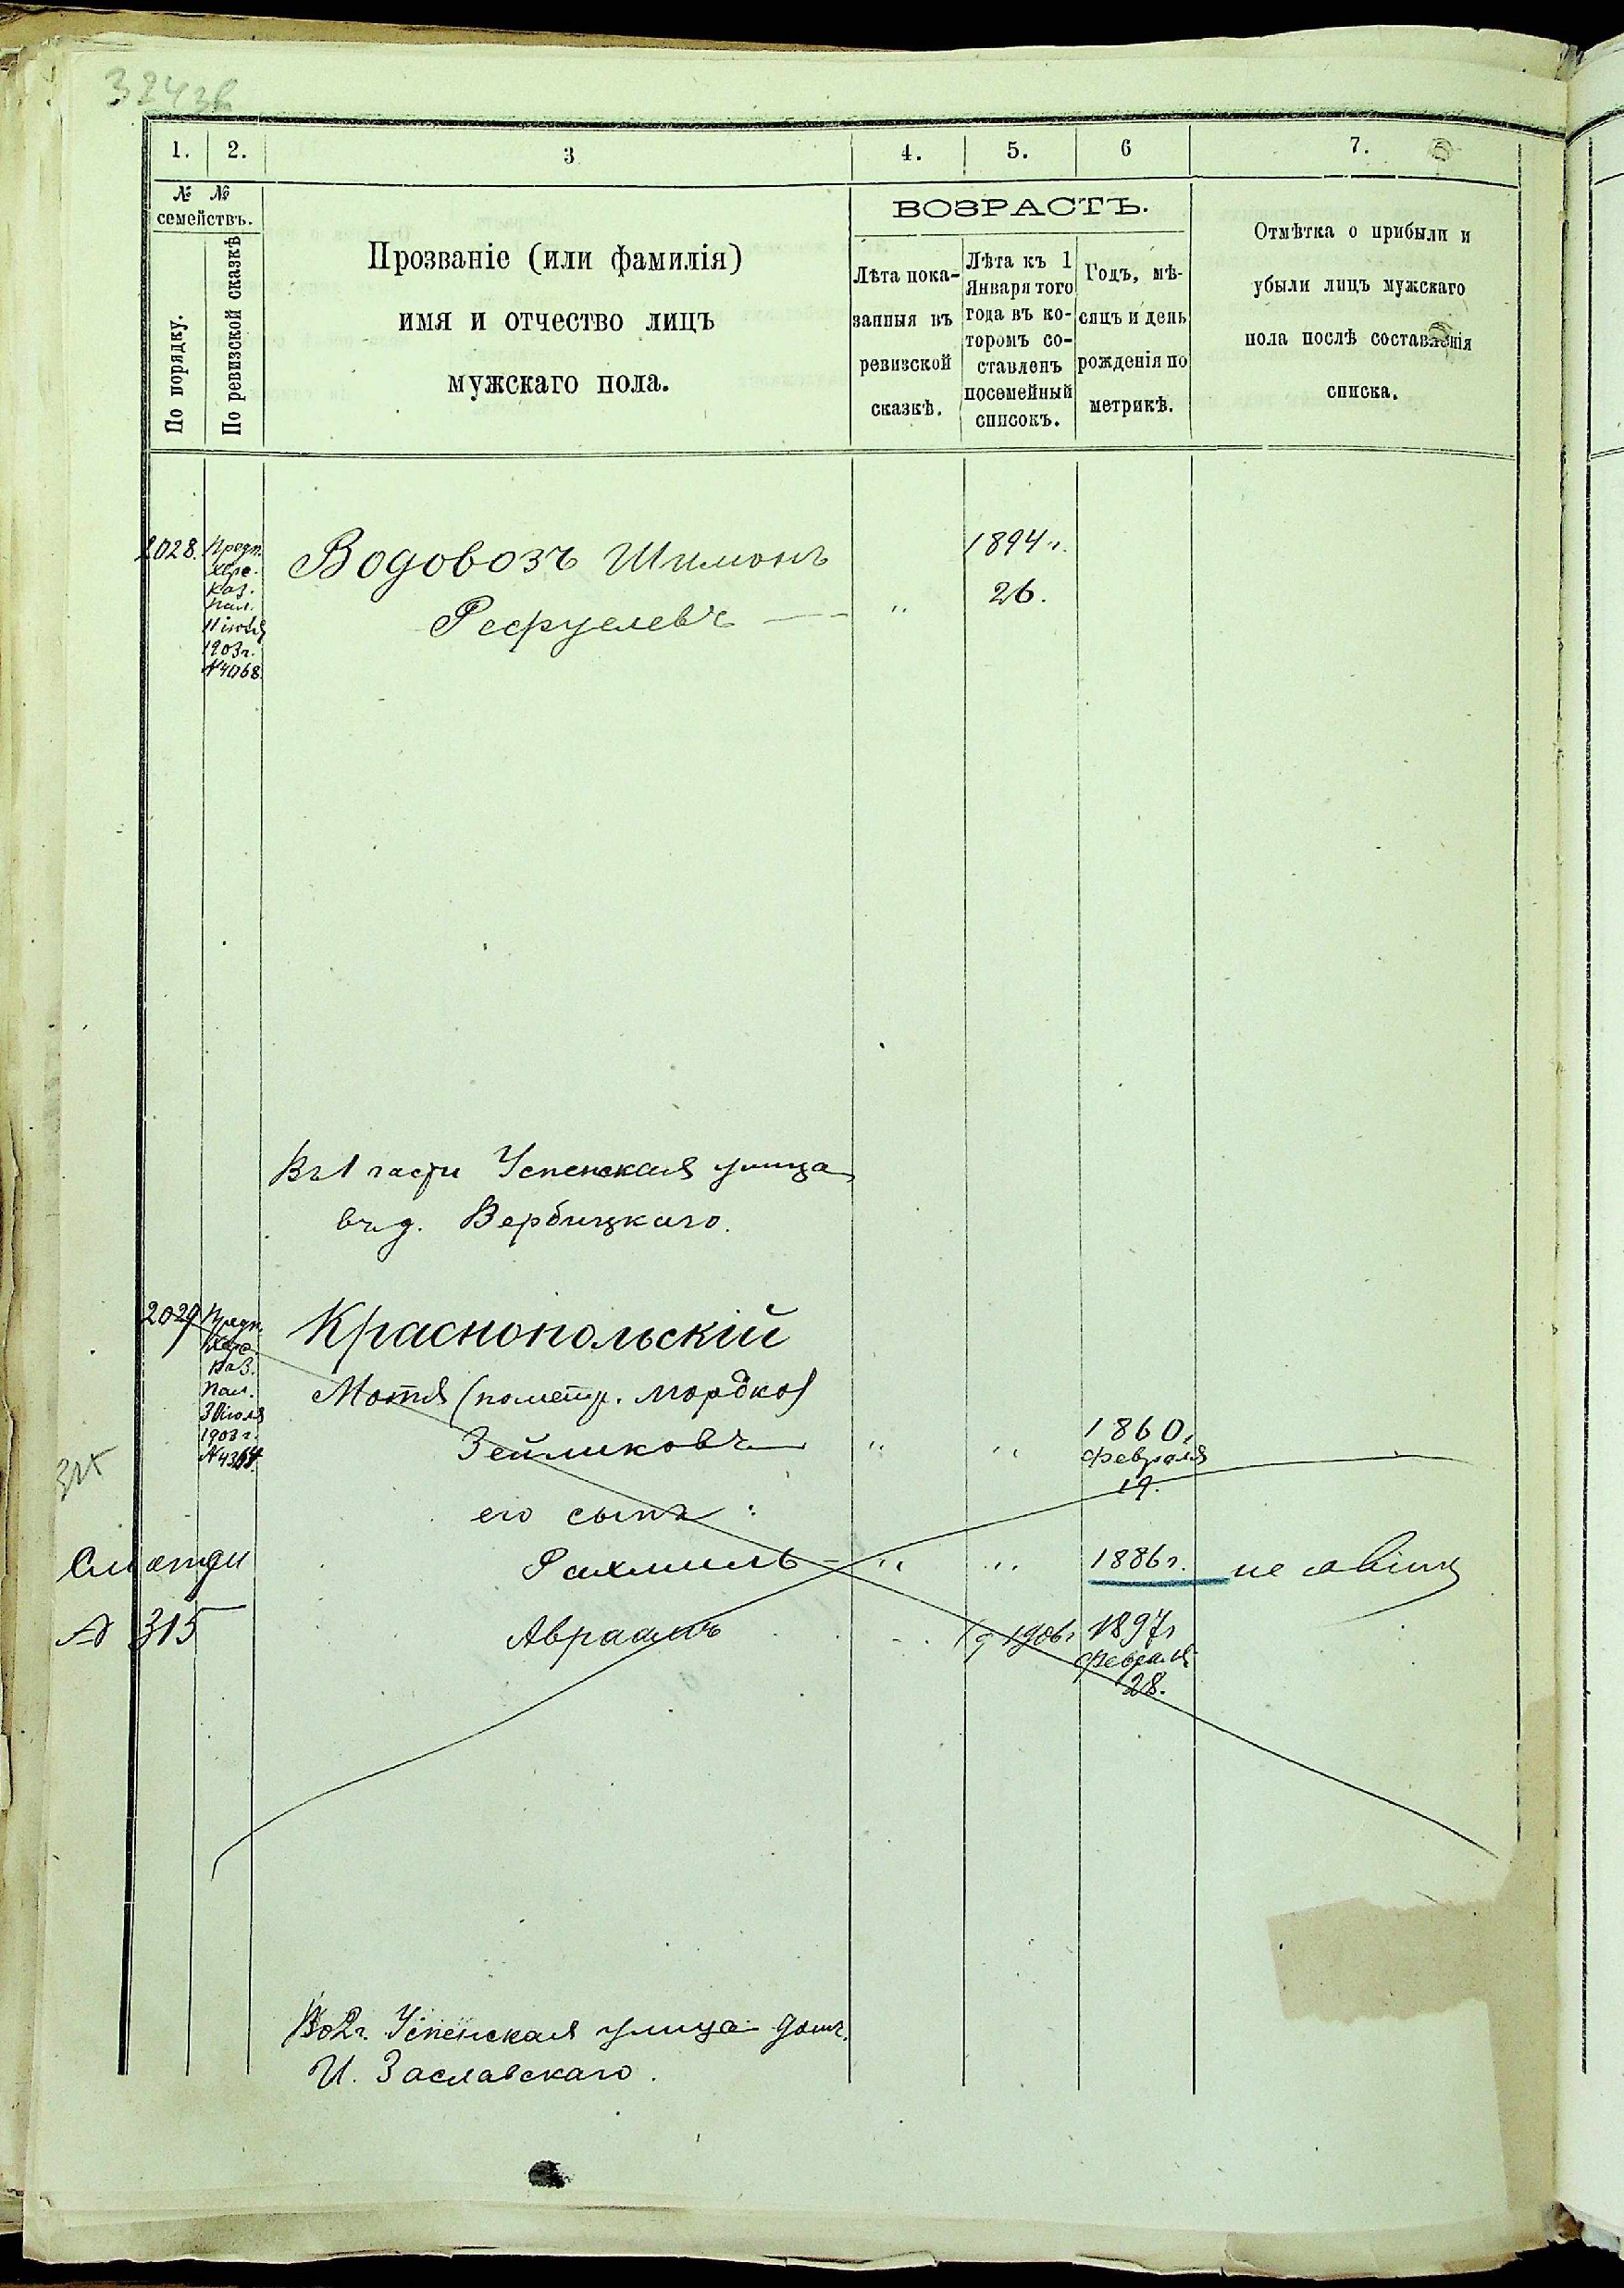 1. 2. 3 4. 5. 6 7.
№ №
семействъ.
По порядку.
По ревизской сказкѣ
Прозваніе (или фамилія)
имя и отчество лицъ
мужскаго пола.
ВОЗРАСТЪ.
Лѣта пока-
занныя въ
ревизской
сказкѣ.
Лѣта къ 1
Января того
года въ ко-
торомъ со-
ставленъ
посемейный
списокъ.
Годъ, мѣ-
сяцъ и день
рожденія по
метрикѣ.
Отмѣтка о прибыли и
убыли лицъ мужскаго
пола послѣ составленія
списка.
2028.
Предп.
Хере.
Каз.
Пал.
11 іюля
1903 г.
№ 4068.
Водовозъ Шимонъ
Рефуелевъ
1894 г.
" 26.
Въ 1 части Успенская улица
въ д. Вербицкаго.
2029
Предп.
Хере.
Каз.
Пал.
30 іюля
1903 г.
Краснопольскій
Мотя (по метр. Мордко)
Зейликовъ " "
1860.
Февраля
19.
его сынъ:
Рахмиль " " 1886 г.
№ 315
Авраамъ 1906 г 1897 г
Февраля
28.
Во 2 ч. Успенская улица домъ.
И. Заславскаго.